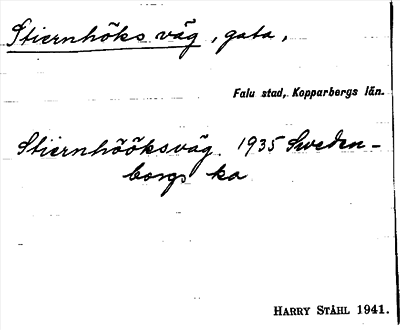 Stiernhöks väg, gata,
Falu stad, Kopparbergs län.
Stiernhööksväg. 1935 Sweden-
borgs ka
HARRY STÅHL 1941.